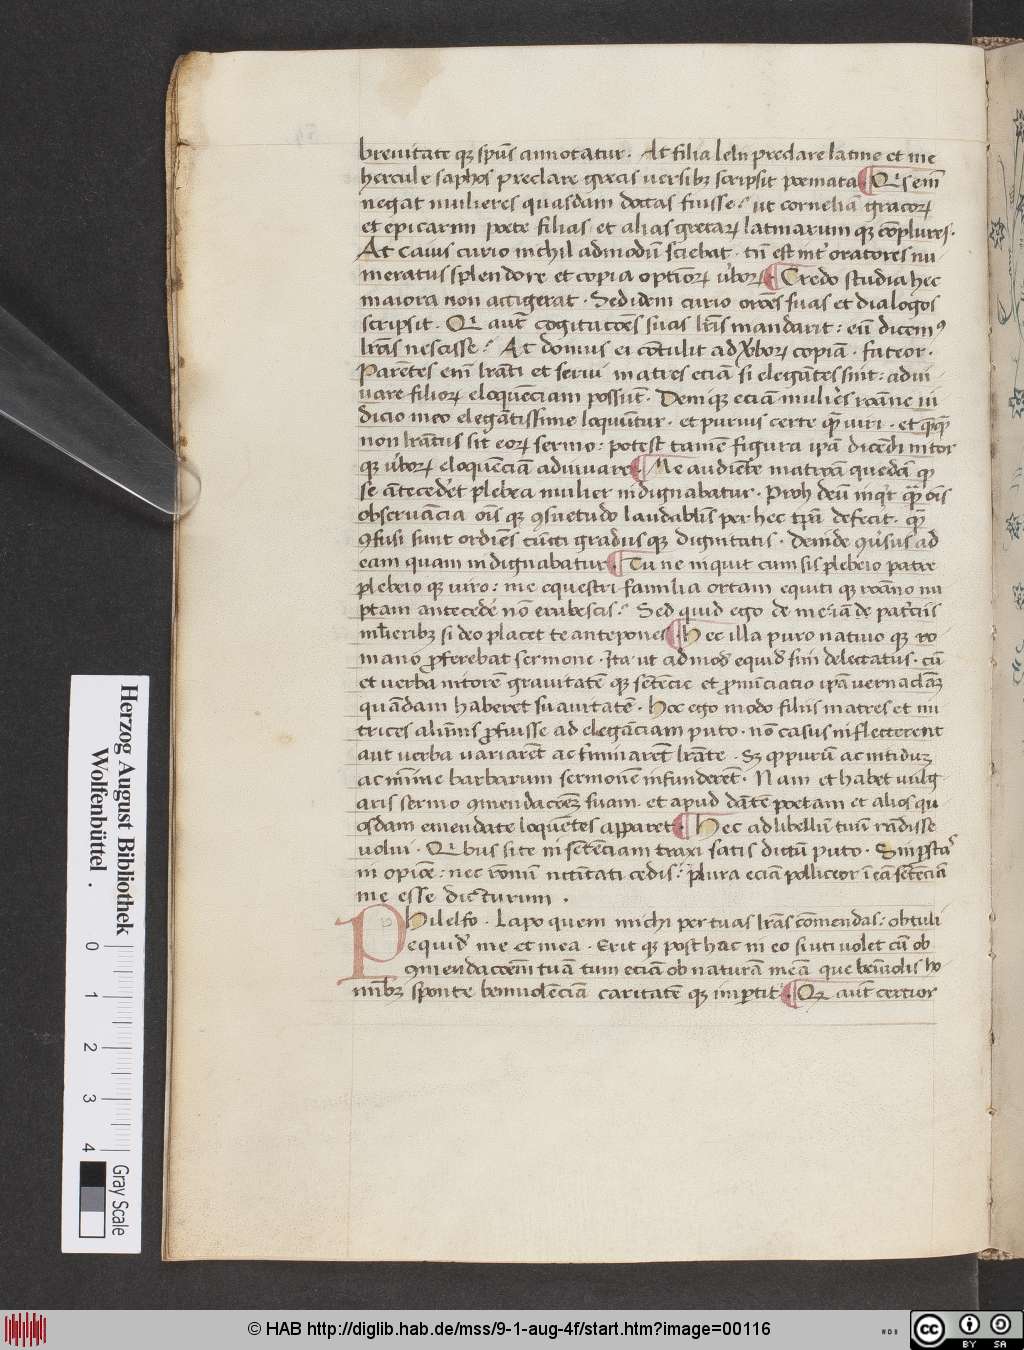 breuitate qꝫ spūs annotatur. At filia lelii preclare latine et me
hercule saphos preclare grecis uersibꝫ scripsit poemata Qis eīm
negat mulieres quasdam doctas fuisse: ut corneliā gracoꝝ
et epicarmi poete filias et alias grecaꝝ latinarum qꝫ cōplures.
At caius curio nichil admodū sciebat. tn̄ est int̄ oratores nu
meratus splendore et copia optioꝝ ūboꝝ Credo studia hec
maiora non attigerat. Sed idem curio orōes suas et dialogos
scripsit. Qi aut̄ cogitacōes suas lr̄is mandarit: eū dicemꝰ
lr̄as nescisse: At domus ei cōtulit ad ūboꝝ copiā. fateor.
Parentes enī lr̄ati et serui matres eciā si elegātes sint: adiu
uare filioꝝ eloquēciam possūt. Deniqꝫ eciā mulieȓs roāne iu
dicio meo elegātissime loquūtur. et purius certe qꝫ̄ uiri. et qꝫqꝫ̄
non lr̄atus sit eoꝝ sermo: potest tamē figura ipā dicēdi nitor
qꝫ ūboꝝ eloquēciā adiuuare Me audiēte matronā quedā qꝫ
se ātecedēt plebea mulier indignabatur. Proh deū inqꝫt qꝫ̄ oīs
obseruācia oīs qꝫ ꝯsuetudo laudabilīs per hec tp̄a defecit. qꝫ̄
ꝯfusi sunt ordiēs cūcti gradus qꝫ dignitatis. Deinde ꝯūsus ad
eam quam indignabatur Tu ne inquit cum sis plebeio patre
plebeio qꝫ uiro: me equestri familia ortam equiti qꝫ roāno nu
ptam antecedēe nō erubescis: Sed quid ego de me: iā de patriciis
mulieribꝫ si deo placet te antepones Hec illa puro natiuo qꝫ ro
mano ꝓferebat sermone. Ita ut admod̄ equid̄ sim delectatus. cū
et uerba nitorē grauitatē qꝫ sētencie et ꝓnūciatio ipā uernaclāꝫ
quādam haberet suauitatē. Hoc ego modo filiis matres et nu
trices alūnis ꝓfuisse ad elegāciam puto. nō casus ni flecterent
aut uerba uariarēt ac t̄minarēt lr̄ate. Sꝫ qꝫ purū ac nitiduꝫ
ac mīme barbarum sermonē infunderēt. Nam et habet uulg
aris sermo ꝯmendacōeꝫ suam. et apud dātē poetam et alios qu
osdam emendate loquētes apparet Hec ad libellū tuū rādisse
uolui. Qibus si te in sētenciam traxi satis dictū puto. Sin pstās
in opiōe: nec romū nitētati cedis: plura eciā polliceor ī eā sētenciā
me esse dicturum.
Philelfo. Lapo quem michi per tuas lr̄as cōmendas: obtuli
equid̄ me et mea. Erit qꝫ post hac in eo si uti uolet cū ob
ꝯmendacōem tuā tum eciā ob naturā meā que beniuolis ho
mībꝫ sponte beniuolēciā caritatē qꝫ impertit. Qꝫ aut̄ certior
Herzog August Bibliothek
Wolfenbüttel.
0 1 2 3 4
Gray Scale
© HAB http://diglib.hab.de/mss/9-1-aug-4f/start.htm?image=00116
WDB
cc BY SA